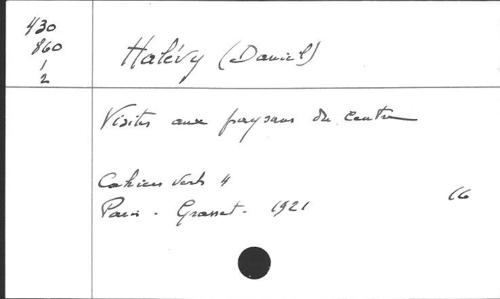 430
860
1
2
Halévy (Daniel)
Visites aux paysans du centre
Cahiers verts 4
Paris - Grasset - 1921
16